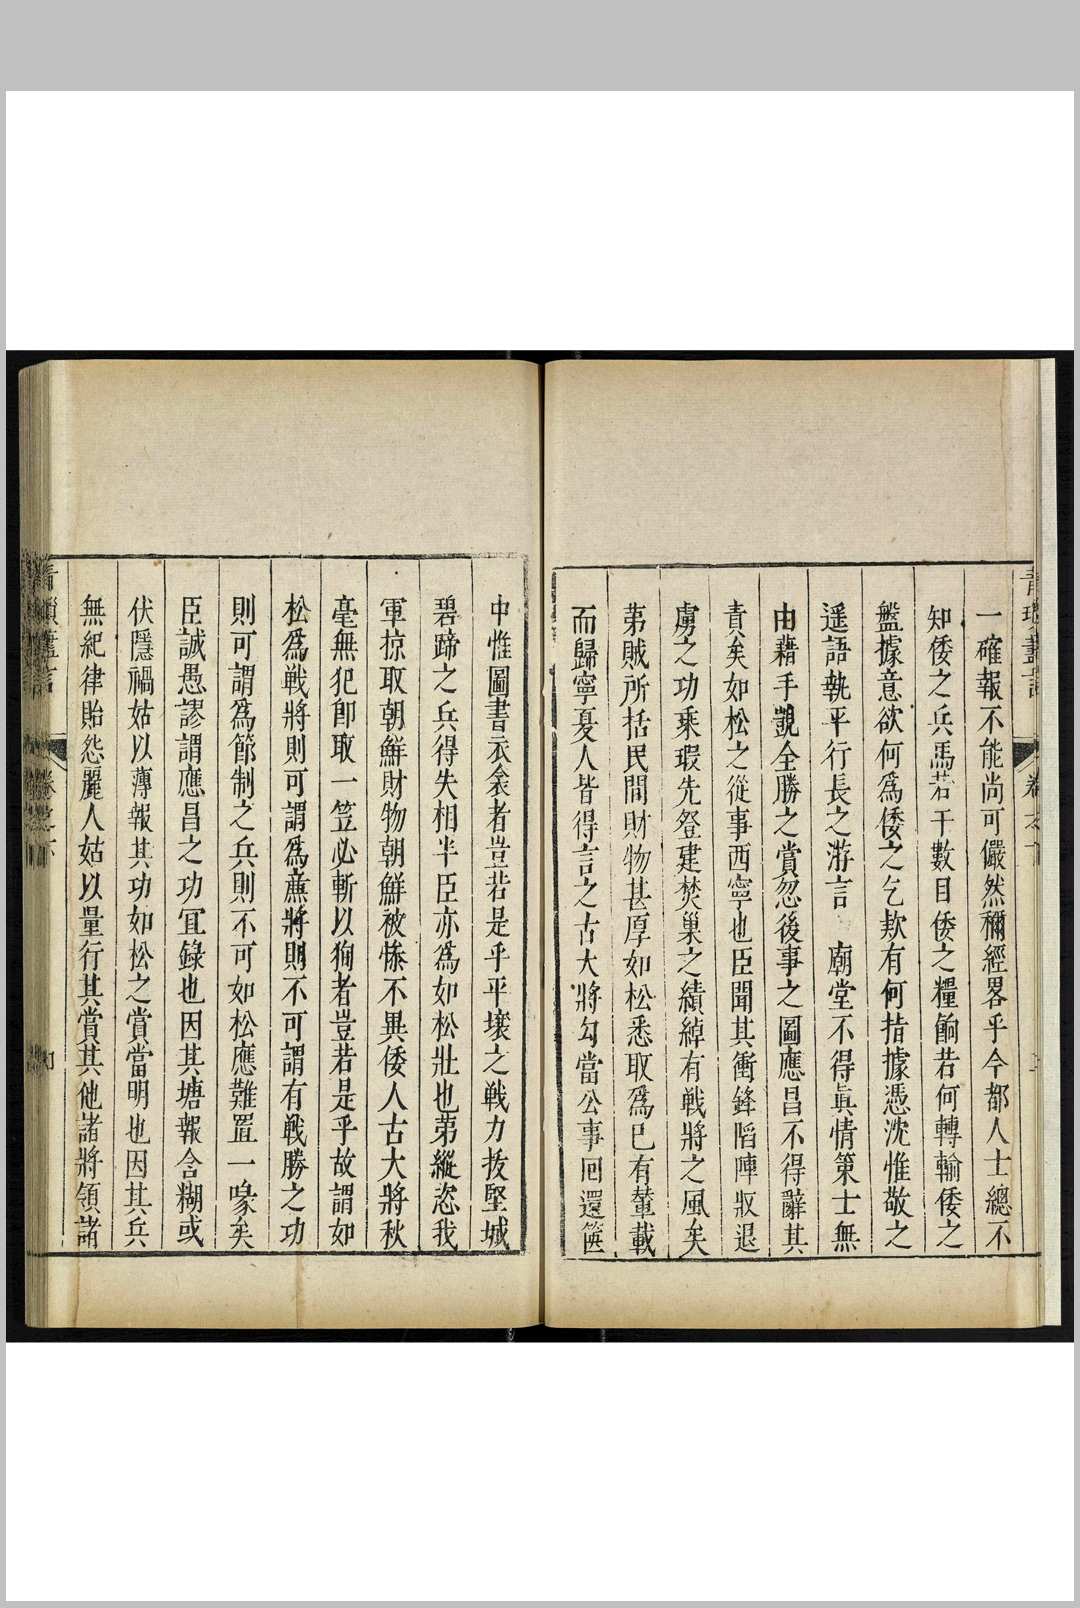 一確報不能尚可儼然稱經畧乎今都人士總不
知倭之兵馬若干數目倭之糧餉若何轉輸倭之
盤據意欲何爲倭之乞款有何指據憑沈惟敬之
遥語執平行長之游言 廟堂不得眞情策士無
由藉手覬全勝之賞忽後事之圖應昌不得辭其
責矣如松之從事西寧也臣聞其衝鋒陷陣馭退
虜之功乘瑕先登建焚巢之績綽有戰將之風矣
第賊所括民間財物甚厚如松悉取爲巳有輦載
而歸寧夏人皆得言之古大將勾當公事回還篋
中惟圖書衣衾者豈若是乎平壤之戰力拔堅城
碧蹄之兵得失相半臣亦爲如松壯也第縱恣我
軍掠取朝鮮財物朝鮮被慘不異倭人古大將秋
毫無犯卽取一笠必斬以徇者豈若是乎故謂如
松爲戰將則可謂爲廉將則不可謂有戰勝之功
則可謂爲節制之兵則不可如松應難置一喙矣
臣誠愚謬謂應昌之功宜錄也因其塘報含糊或
伏隱禍姑以薄報其功如松之賞當明也因其兵
無紀律貽怨麗人姑以量行其賞其他諸將領諸